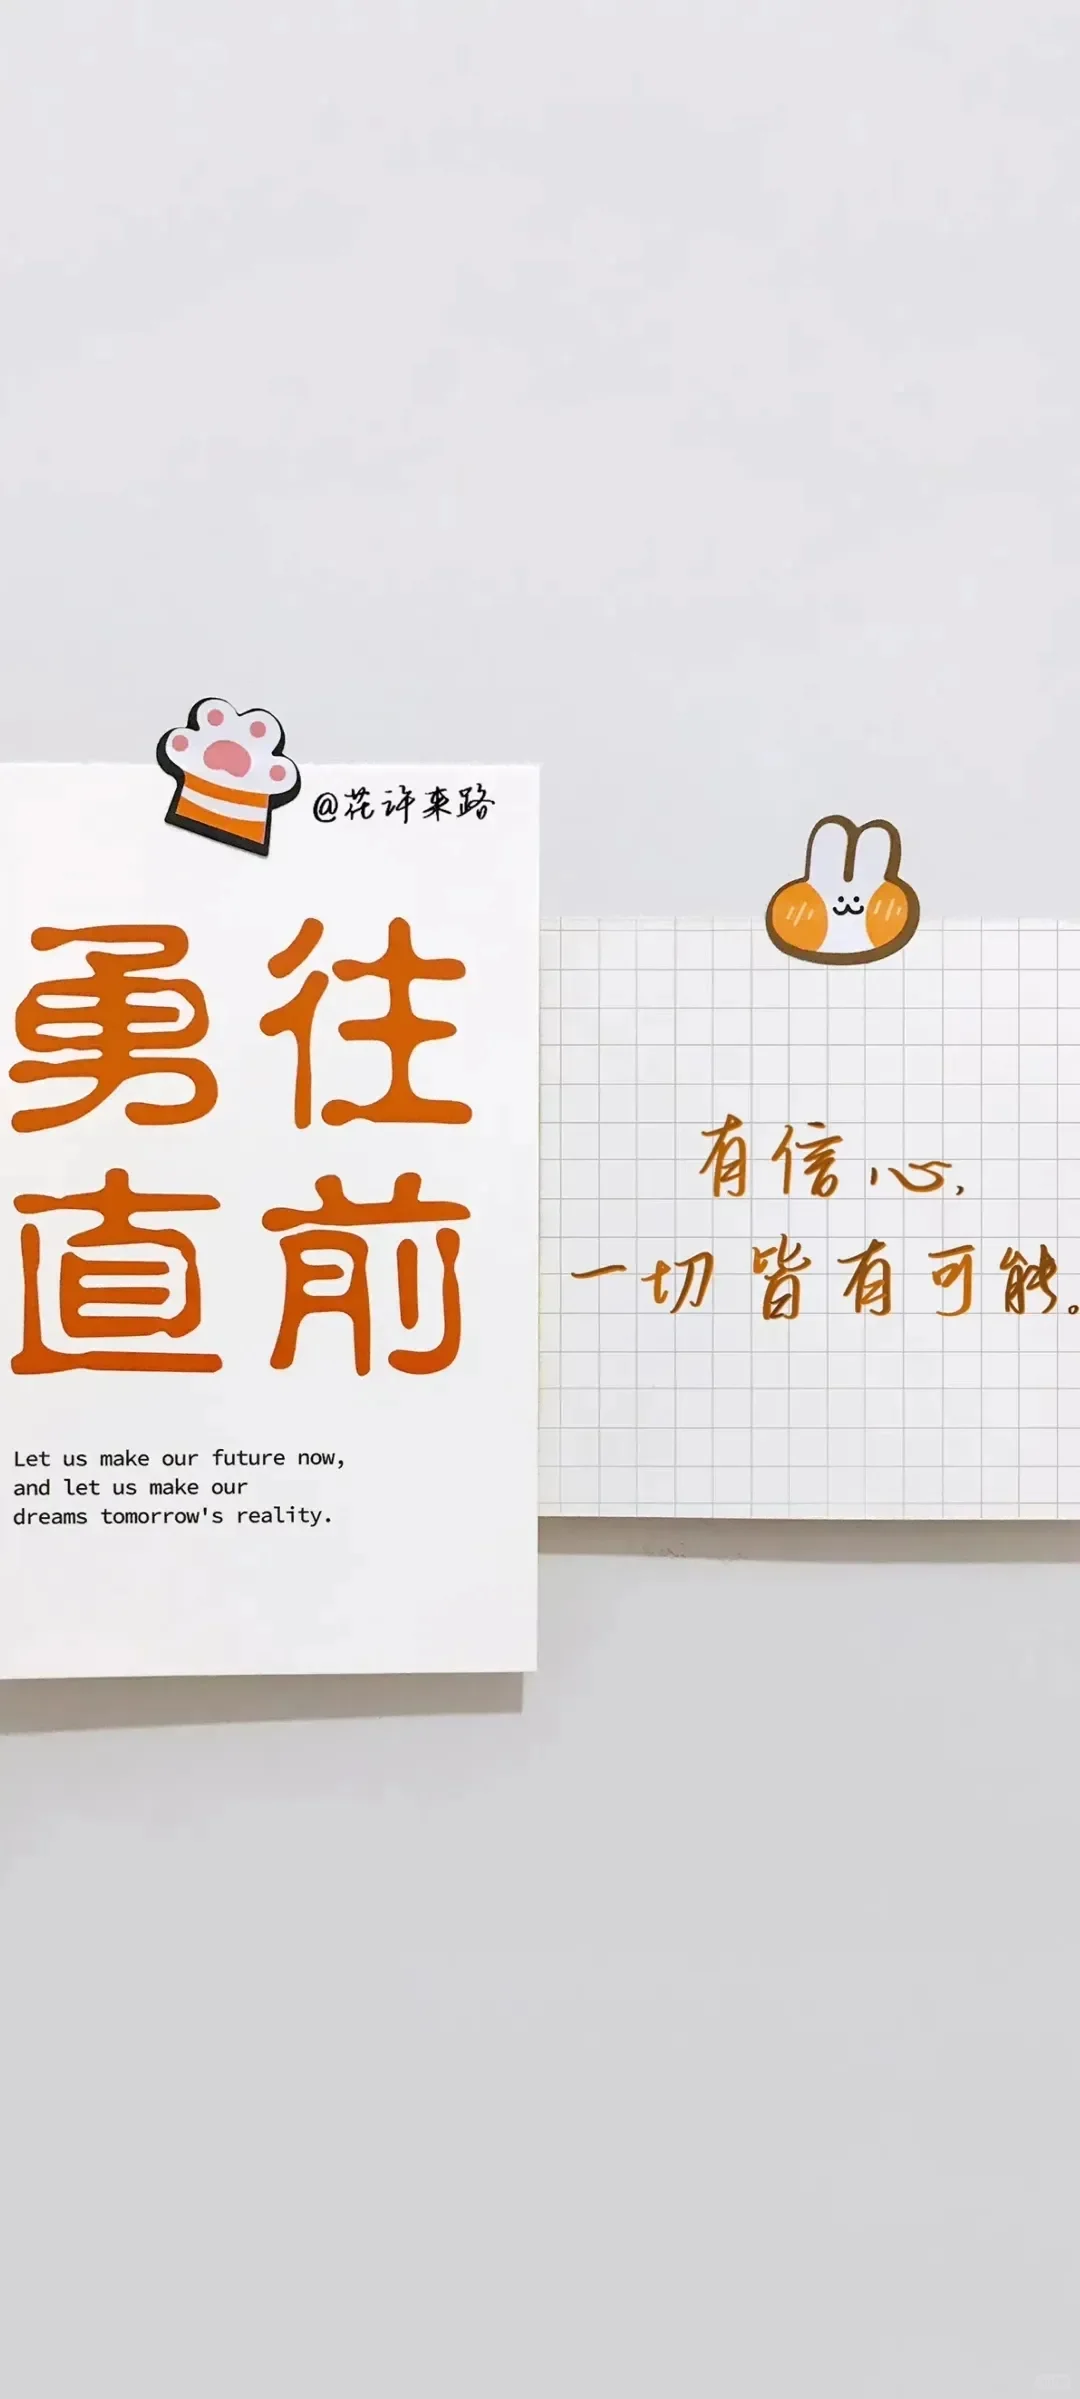 @花许来路
勇往
直前
Let us make our future now,
and let us make our
dreams tomorrow's reality.
有信心,
一切皆有可能。